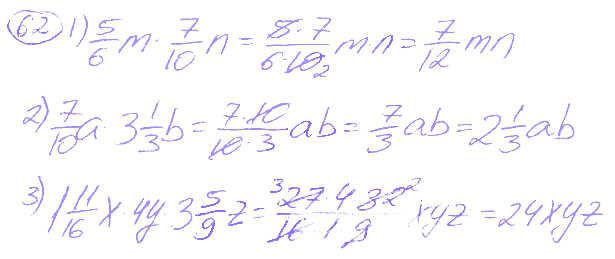 62 1) 5/6 m · 7/10 n = 5·7/6·10₂ mn = 7/12 mn
2) 7/10 a · 3 1/3 b = 7·10/10·3 ab = 7/3 ab = 2 1/3 ab
3) 1 11/16 x · 4y · 3 5/9 z = ³27·4·32²/16·1·9 xyz = 24xyz